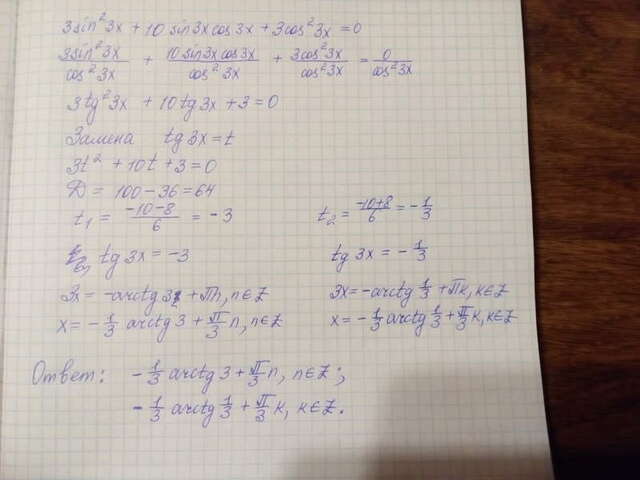 3sin²3x + 10sin3xcos3x + 3cos²3x = 0
3sin²3x/cos²3x + 10sin3xcos3x/cos²3x + 3cos²3x/cos²3x = 0/cos²3x
3tg²3x + 10tg3x + 3 = 0
Замена tg3x = t
3t² + 10t + 3 = 0
D = 100 - 36 = 64
t₁ = (-10-8)/6 = -3 t₂ = (-10+8)/6 = -1/3
tg3x = -3 tg3x = -1/3
3x = -arctg3 + πn, n∈Z 3x = -arctg 1/3 + πk, k∈Z
x = -1/3 arctg3 + π/3 n, n∈Z x = -1/3 arctg 1/3 + π/3 k, k∈Z
Ответ: -1/3 arctg3 + π/3 n, n∈Z;
-1/3 arctg 1/3 + π/3 k, k∈Z.